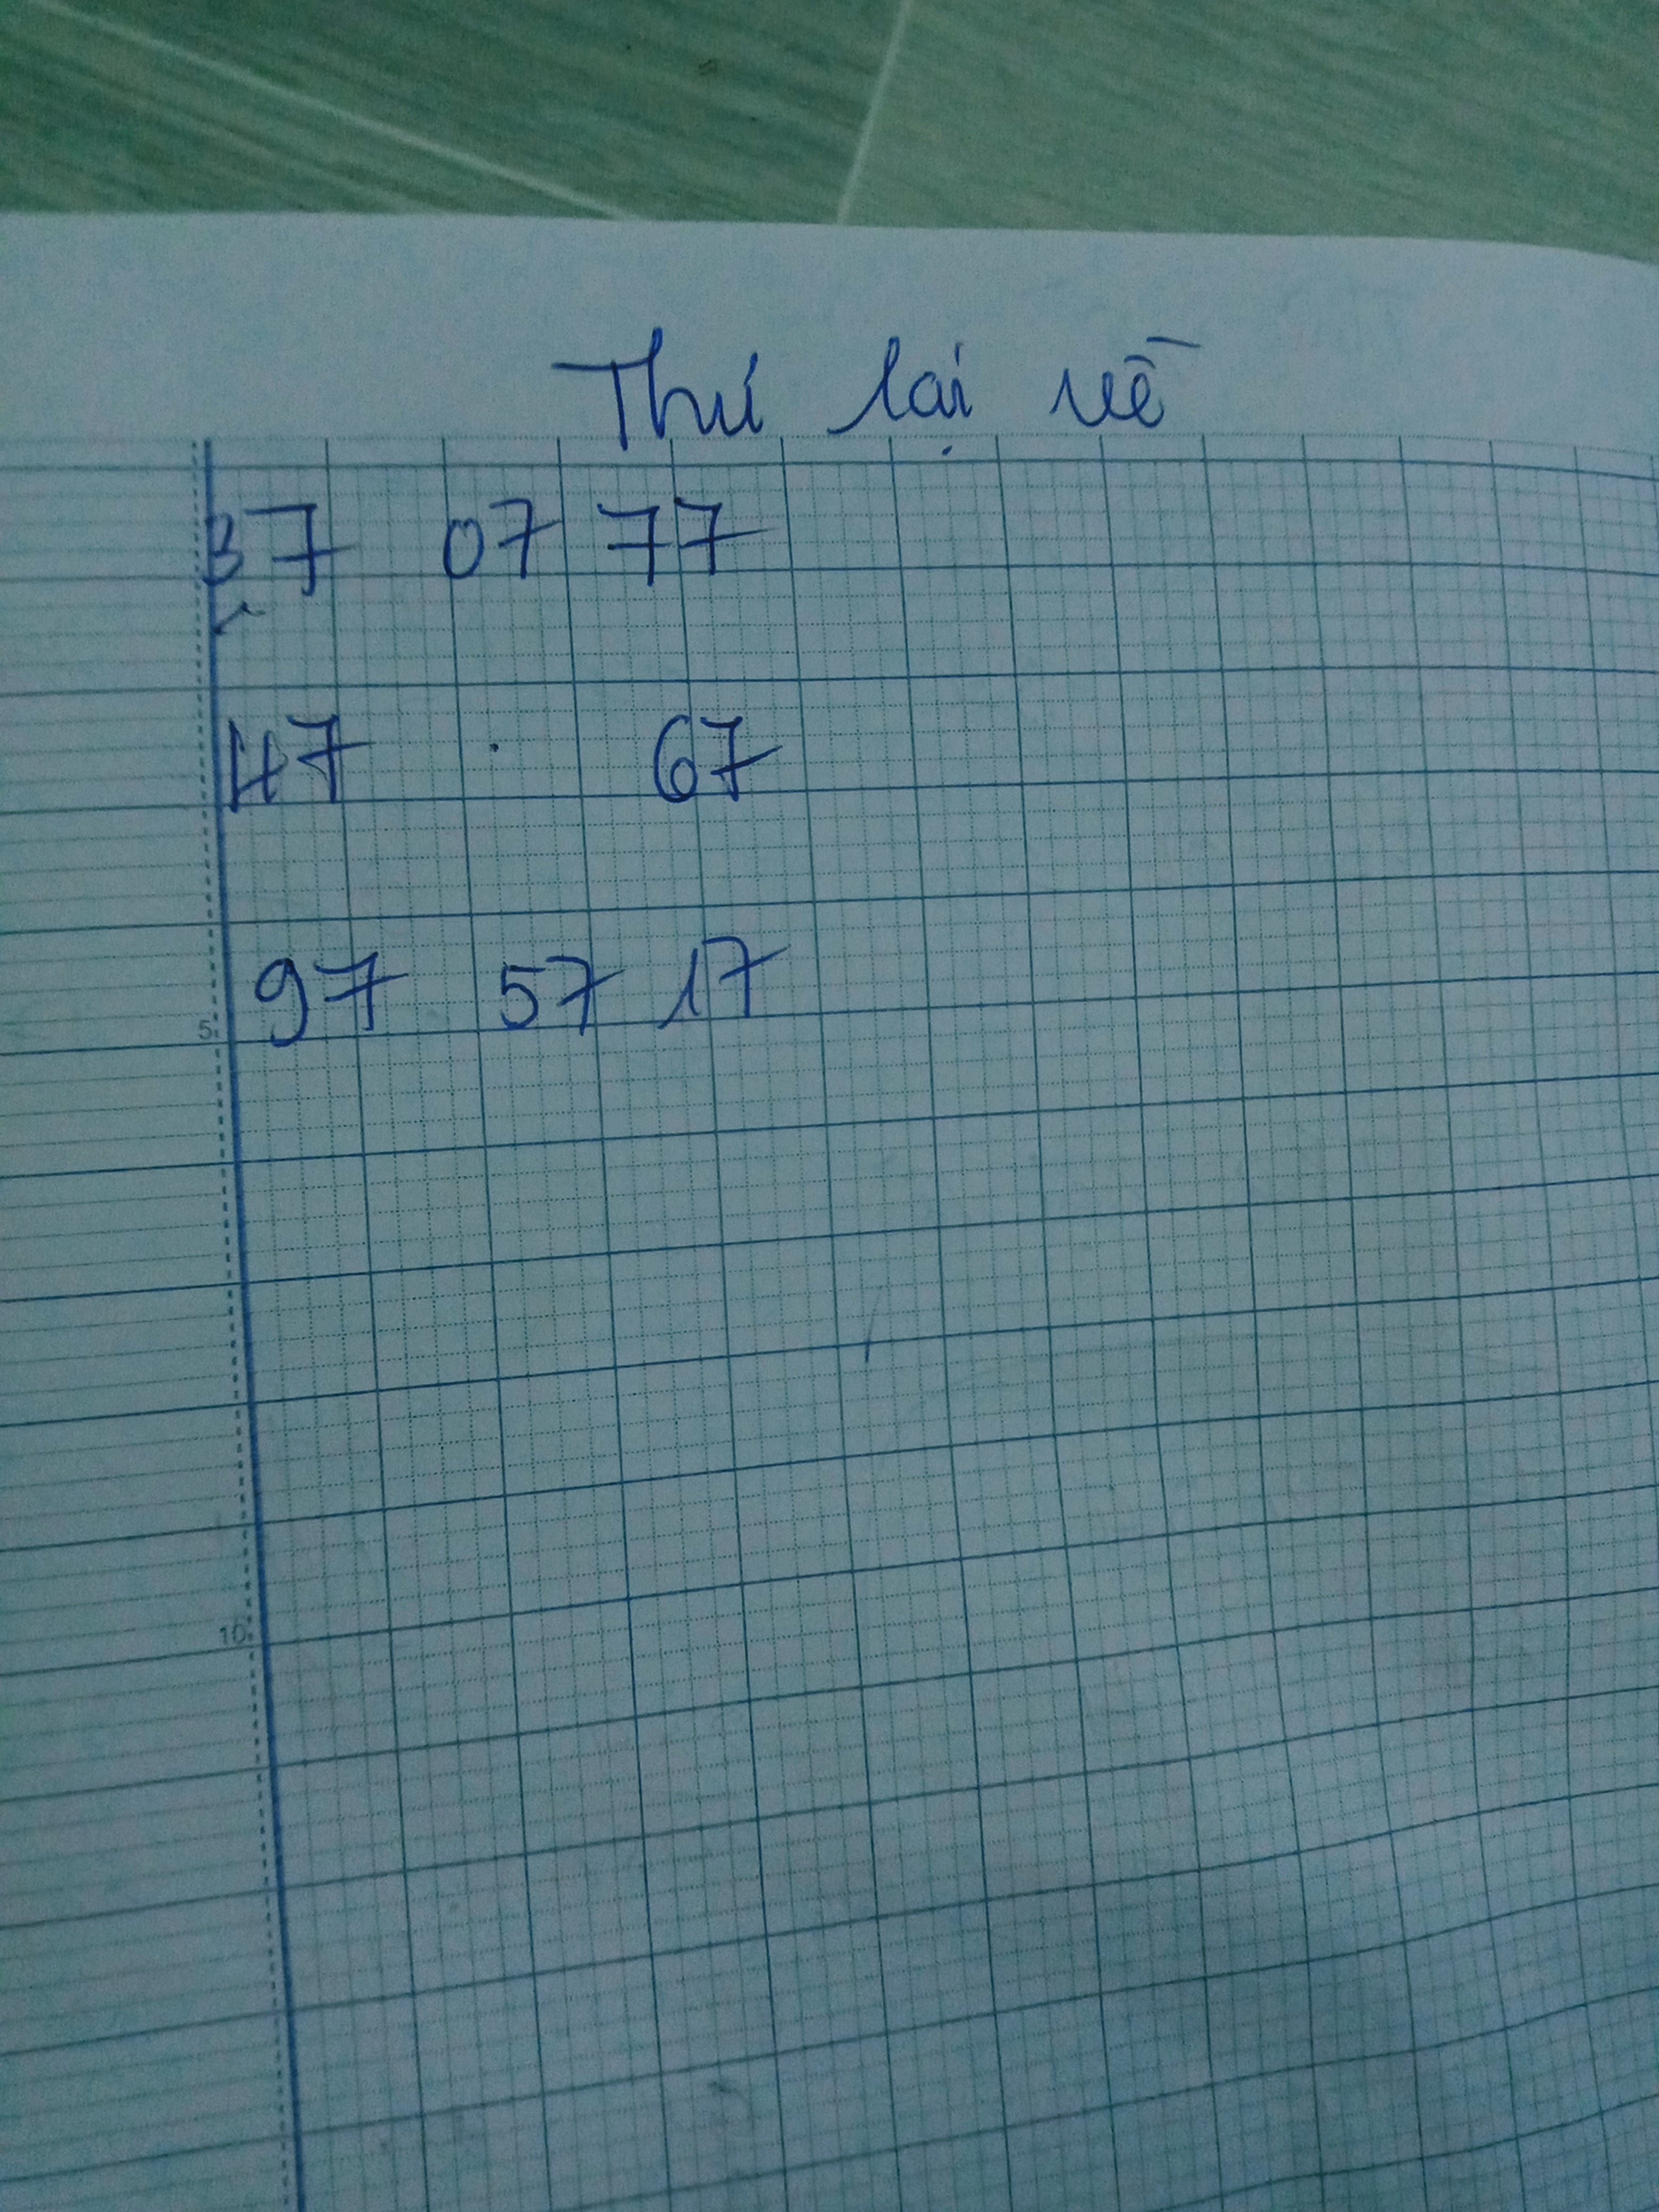 Thú lại về
37 07 77
47 . 67
97 57 17
5
10